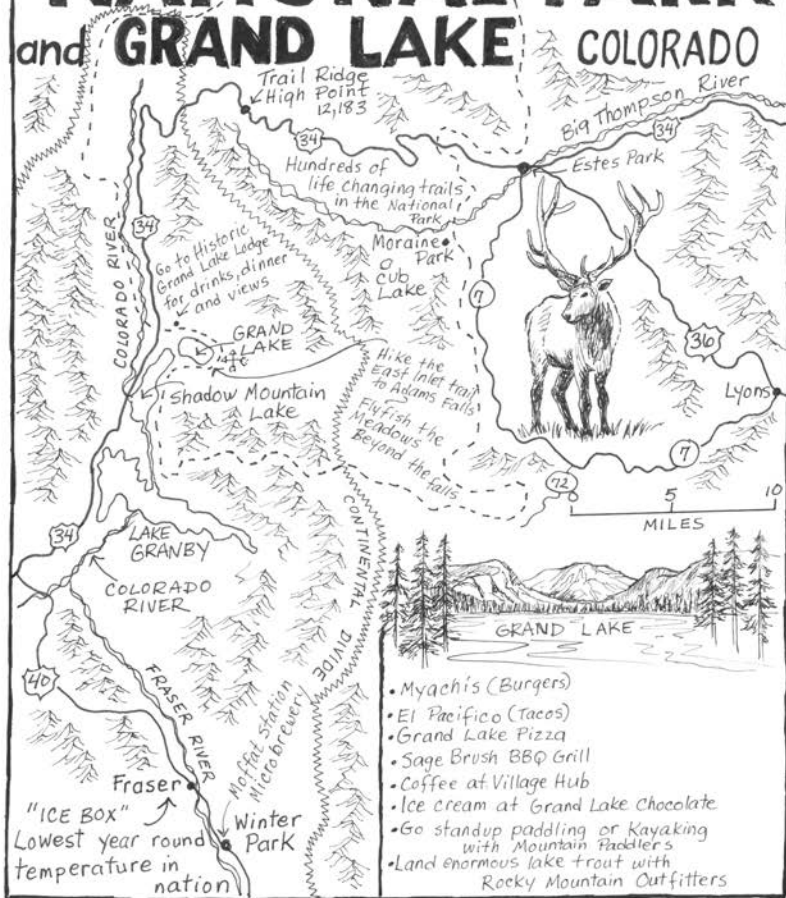 NATIONAL PARK
and GRAND LAKE COLORADO
Trail Ridge
High Point
12,183
34
Big Thompson River
34
Estes Park
Hundreds of
life changing trails
in the National
Park
Moraine
Park
a
cub
Lake
COLORADO RIVER
34
Go to Historic
Grand Lake Lodge
for drinks, dinner
and views
GRAND
LAKE
Shadow Mountain
Lake
Hike the
East Inlet trail
to Adams Falls
Flyfish the
Meadows
Beyond the falls
7
36
Lyons
7
72
0 5 10
MILES
34
LAKE
GRANBY
COLORADO
RIVER
CONTINENTAL DIVIDE
40
FRASER RIVER
Moffat Station
Microbrewery
Fraser
"ICE BOX"
Lowest year round
temperature in
nation
Winter
Park
GRAND LAKE
• Myachis (Burgers)
• El Pacifico (Tacos)
• Grand Lake Pizza
• Sage Brush BBQ Grill
• Coffee at Village Hub
• Ice cream at Grand Lake Chocolate
• Go standup paddling or Kayaking
with Mountain Paddlers
• Land enormous lake trout with
Rocky Mountain Outfitters